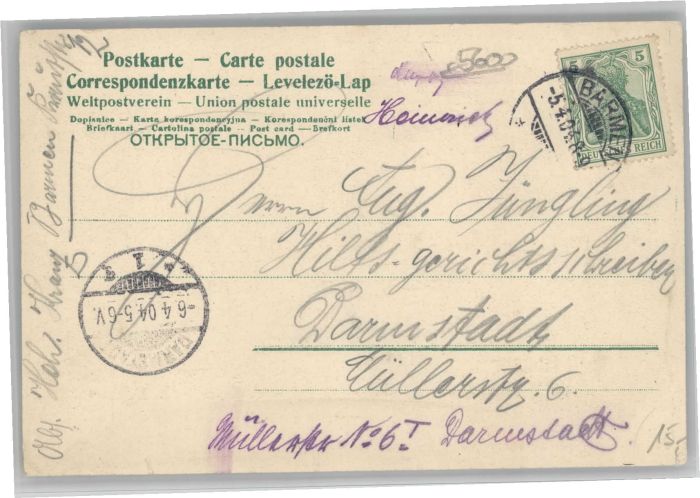 Postkarte — Carte postale
Correspondenzkarte — Levelező-Lap
Weltpostverein — Union postale universelle
Dopisnice — Karta korespondencyjna — Korespondenční lístek
Briefkaart — Cartolina postale — Post card — Brefkort
ОТКРЫТОЕ-ПИСЬМО.
5000
Heinrich
5
BARMEN
-5.4.04.8-9
DEUTSCHES REICH
Herrn Aug. Jüngling
Hilfs-gerichtsschreiber
Darmstadt
Müllerstr. 6.
Müllerstr No 6 I Darmstadt.
-6.4.04.5-6V.
DARMSTADT
Abs. Hch. Kranz Barmen
15.-